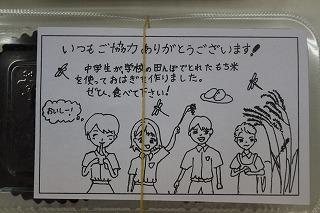 いつもご協力ありがとうございます!
中学生が、学校の田んぼでとれたもち米
を使っておはぎを作りました。
ぜひ、食べて下さい!
おいしー!